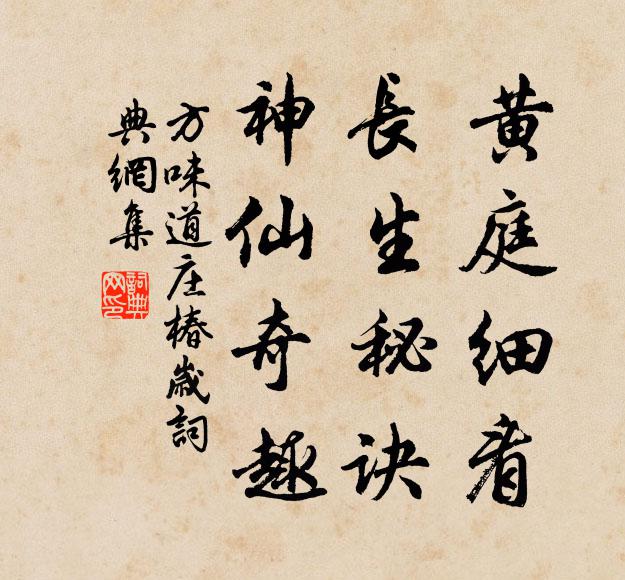 黄庭细看
長生秘诀
神仙奇趣
方味道庄椿歲詞
典網集
詞典网印